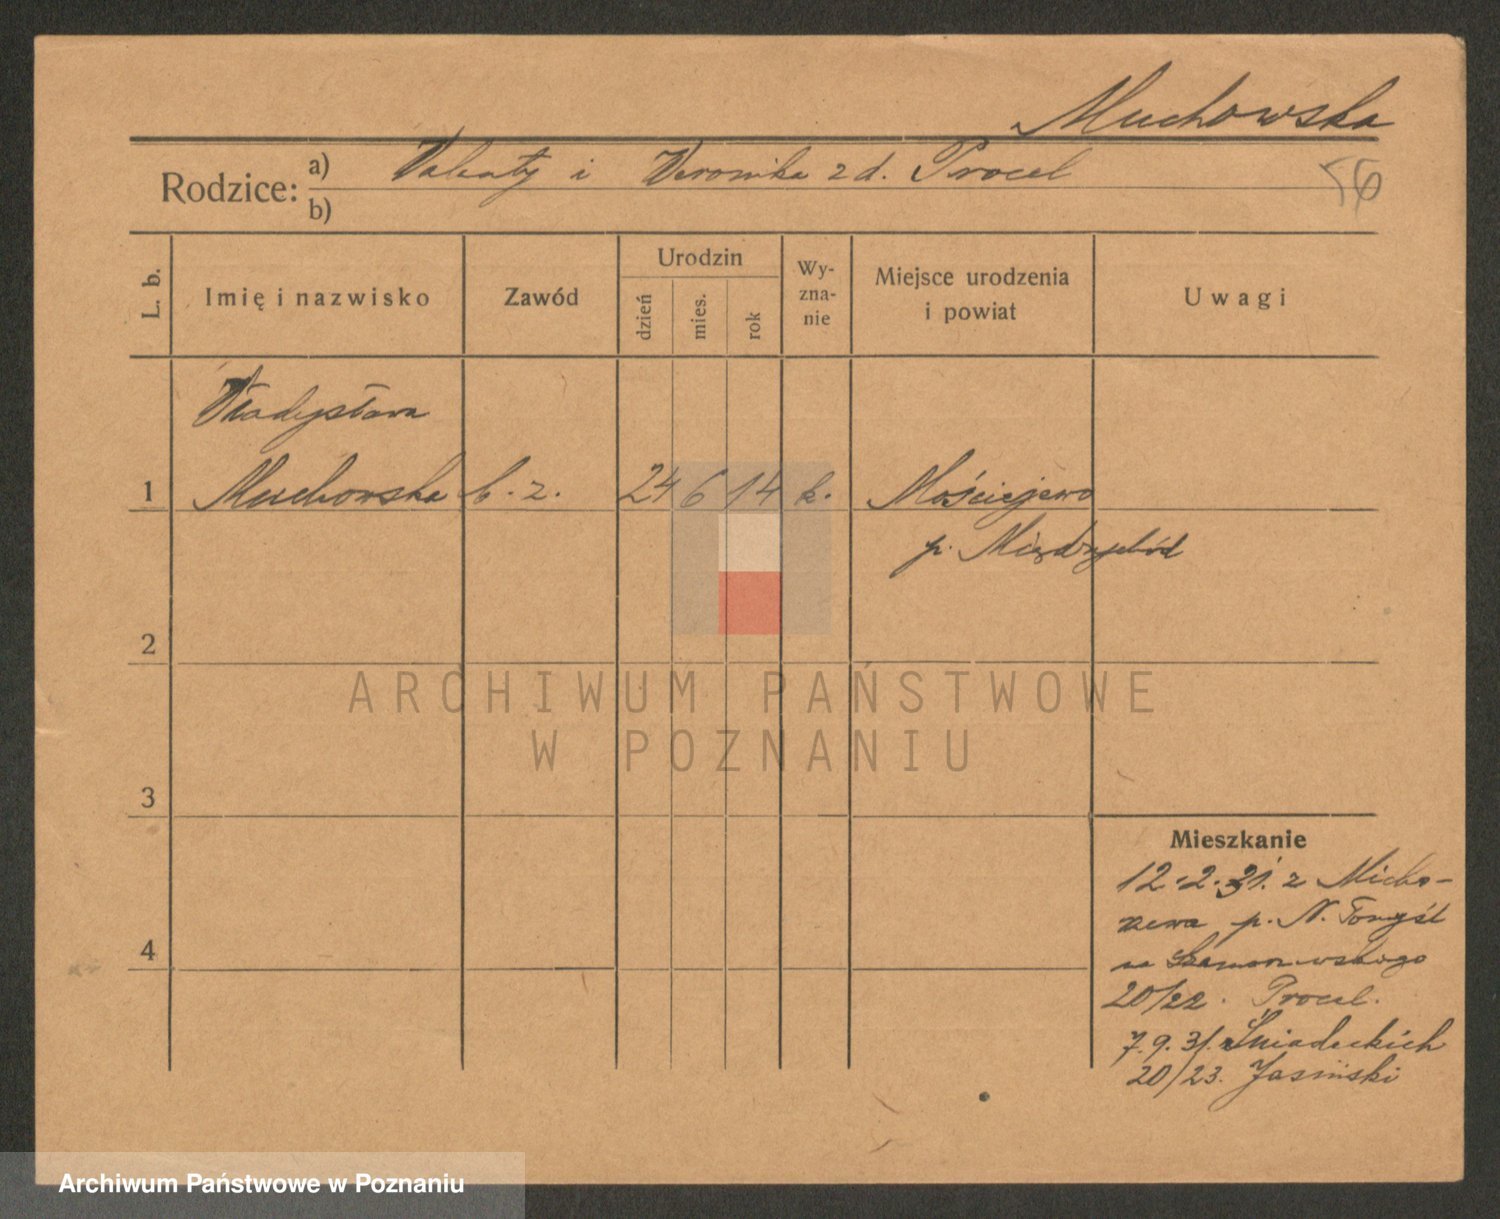 Muchowska
Rodzice: a) Walenty i Weronika z d. Procel
b)
56
L. b.
Imię i nazwisko
Zawód
Urodzin
dzień
mies.
rok
Wy-
zna-
nie
Miejsce urodzenia
i powiat
Uwagi
Władysława
1 Muchowska b. z. 24 6 14 k. Mościejewo
p. Międzychód
2
ARCHIWUM PAŃSTWOWE
W POZNANIU
3
4
Mieszkanie
12.2.31. z Micho-
rzewa p. N. Tomyśl
na Szamarzewskiego
20/22. Procel.
7.9.31. Śniadeckich
20/23. Jasiński
Archiwum Państwowe w Poznaniu